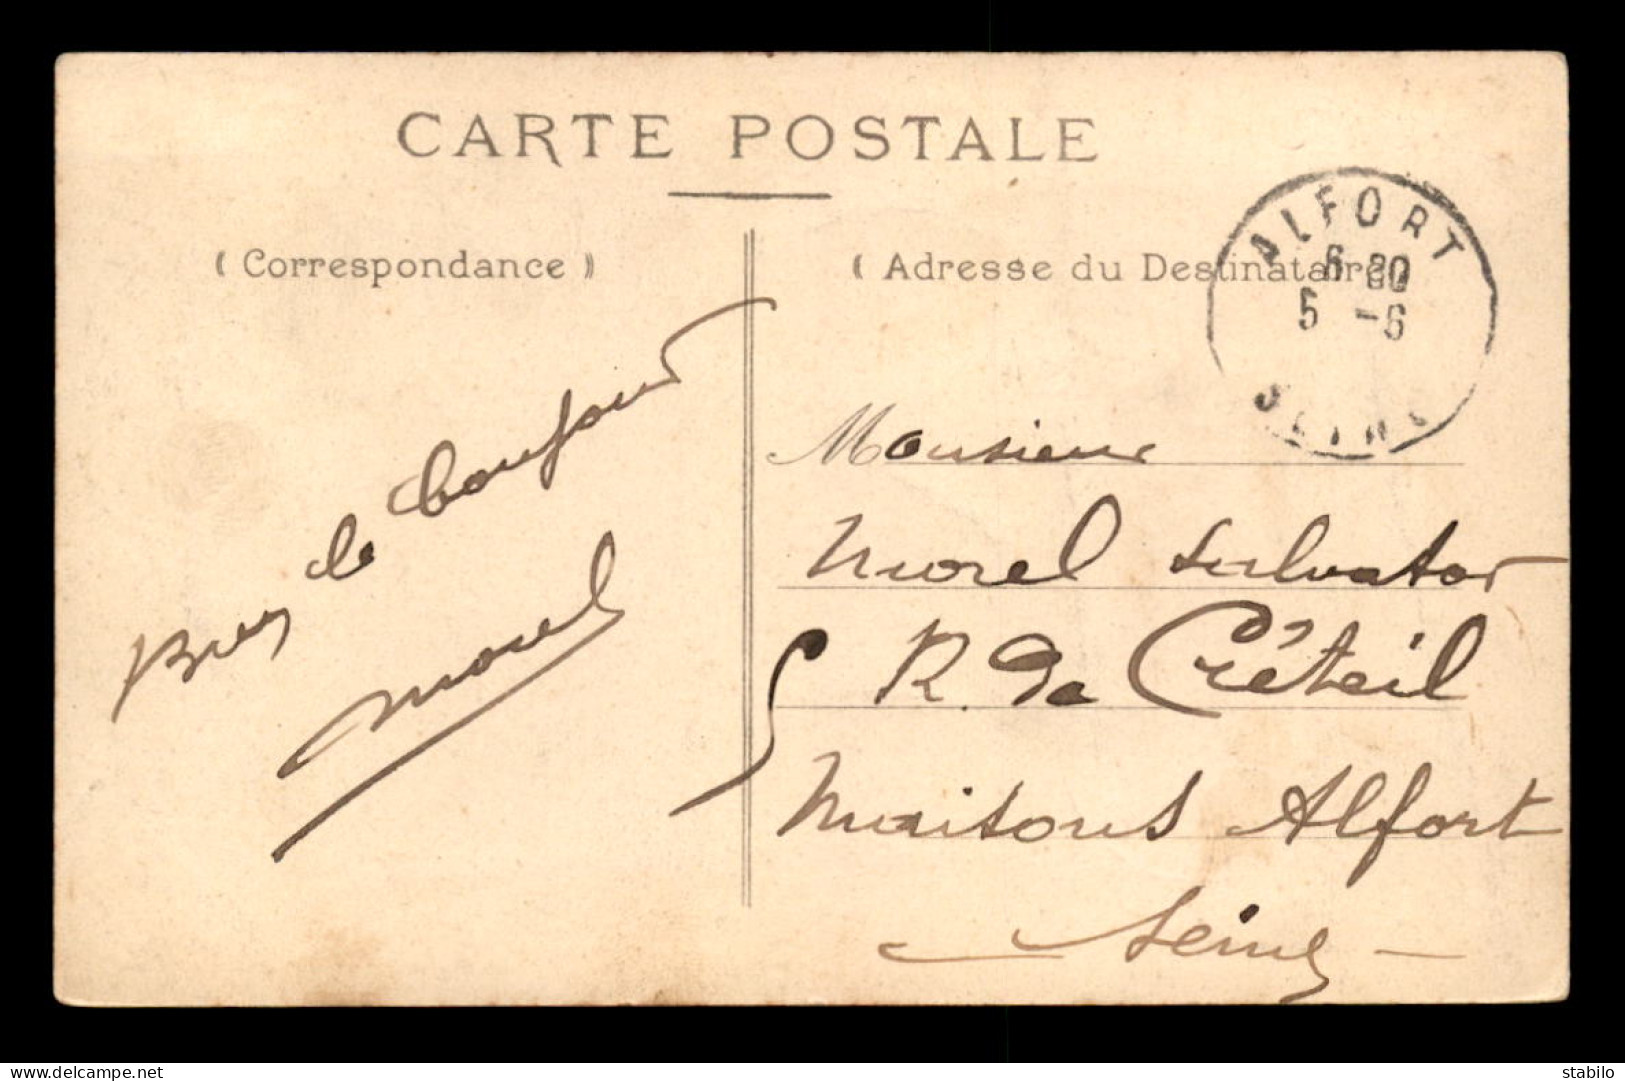 CARTE POSTALE
( Correspondance )
( Adresse du Destinataire
ALFORT
5 -6
SEINE
de bonjour
Morel
Monsieur
Morel Salvator
5 R. de Créteil
Maisons Alfort
Seine
delcampe.net
stabilo